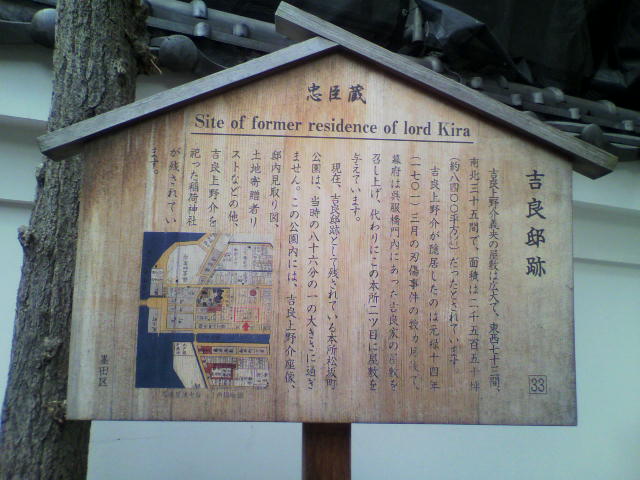 忠臣蔵
Site of former residence of lord Kira
吉良邸跡
吉良上野介義央の屋敷は広大で、東西七十三間、
南北三十五間で、面積は二千五百五十坪
(約八四〇〇平方㍍)だったとされています。
吉良上野介が隠居したのは元禄十四年
(一七〇一)三月の刃傷事件の数カ月後で、
幕府は呉服橋門内にあった吉良家の屋敷を
召し上げ、代わりにこの本所二ツ目に屋敷を
与えています。
現在、吉良邸跡として残されている本所松坂町
公園は、当時の八十六分の一の大きさに過ぎ
ません。この公園内には、吉良上野介座像、
邸内見取り図、
土地寄贈者リ
ストなどの他、
吉良上野介を
祀った稲荷神社
が残されてい
ます。
墨田区
33